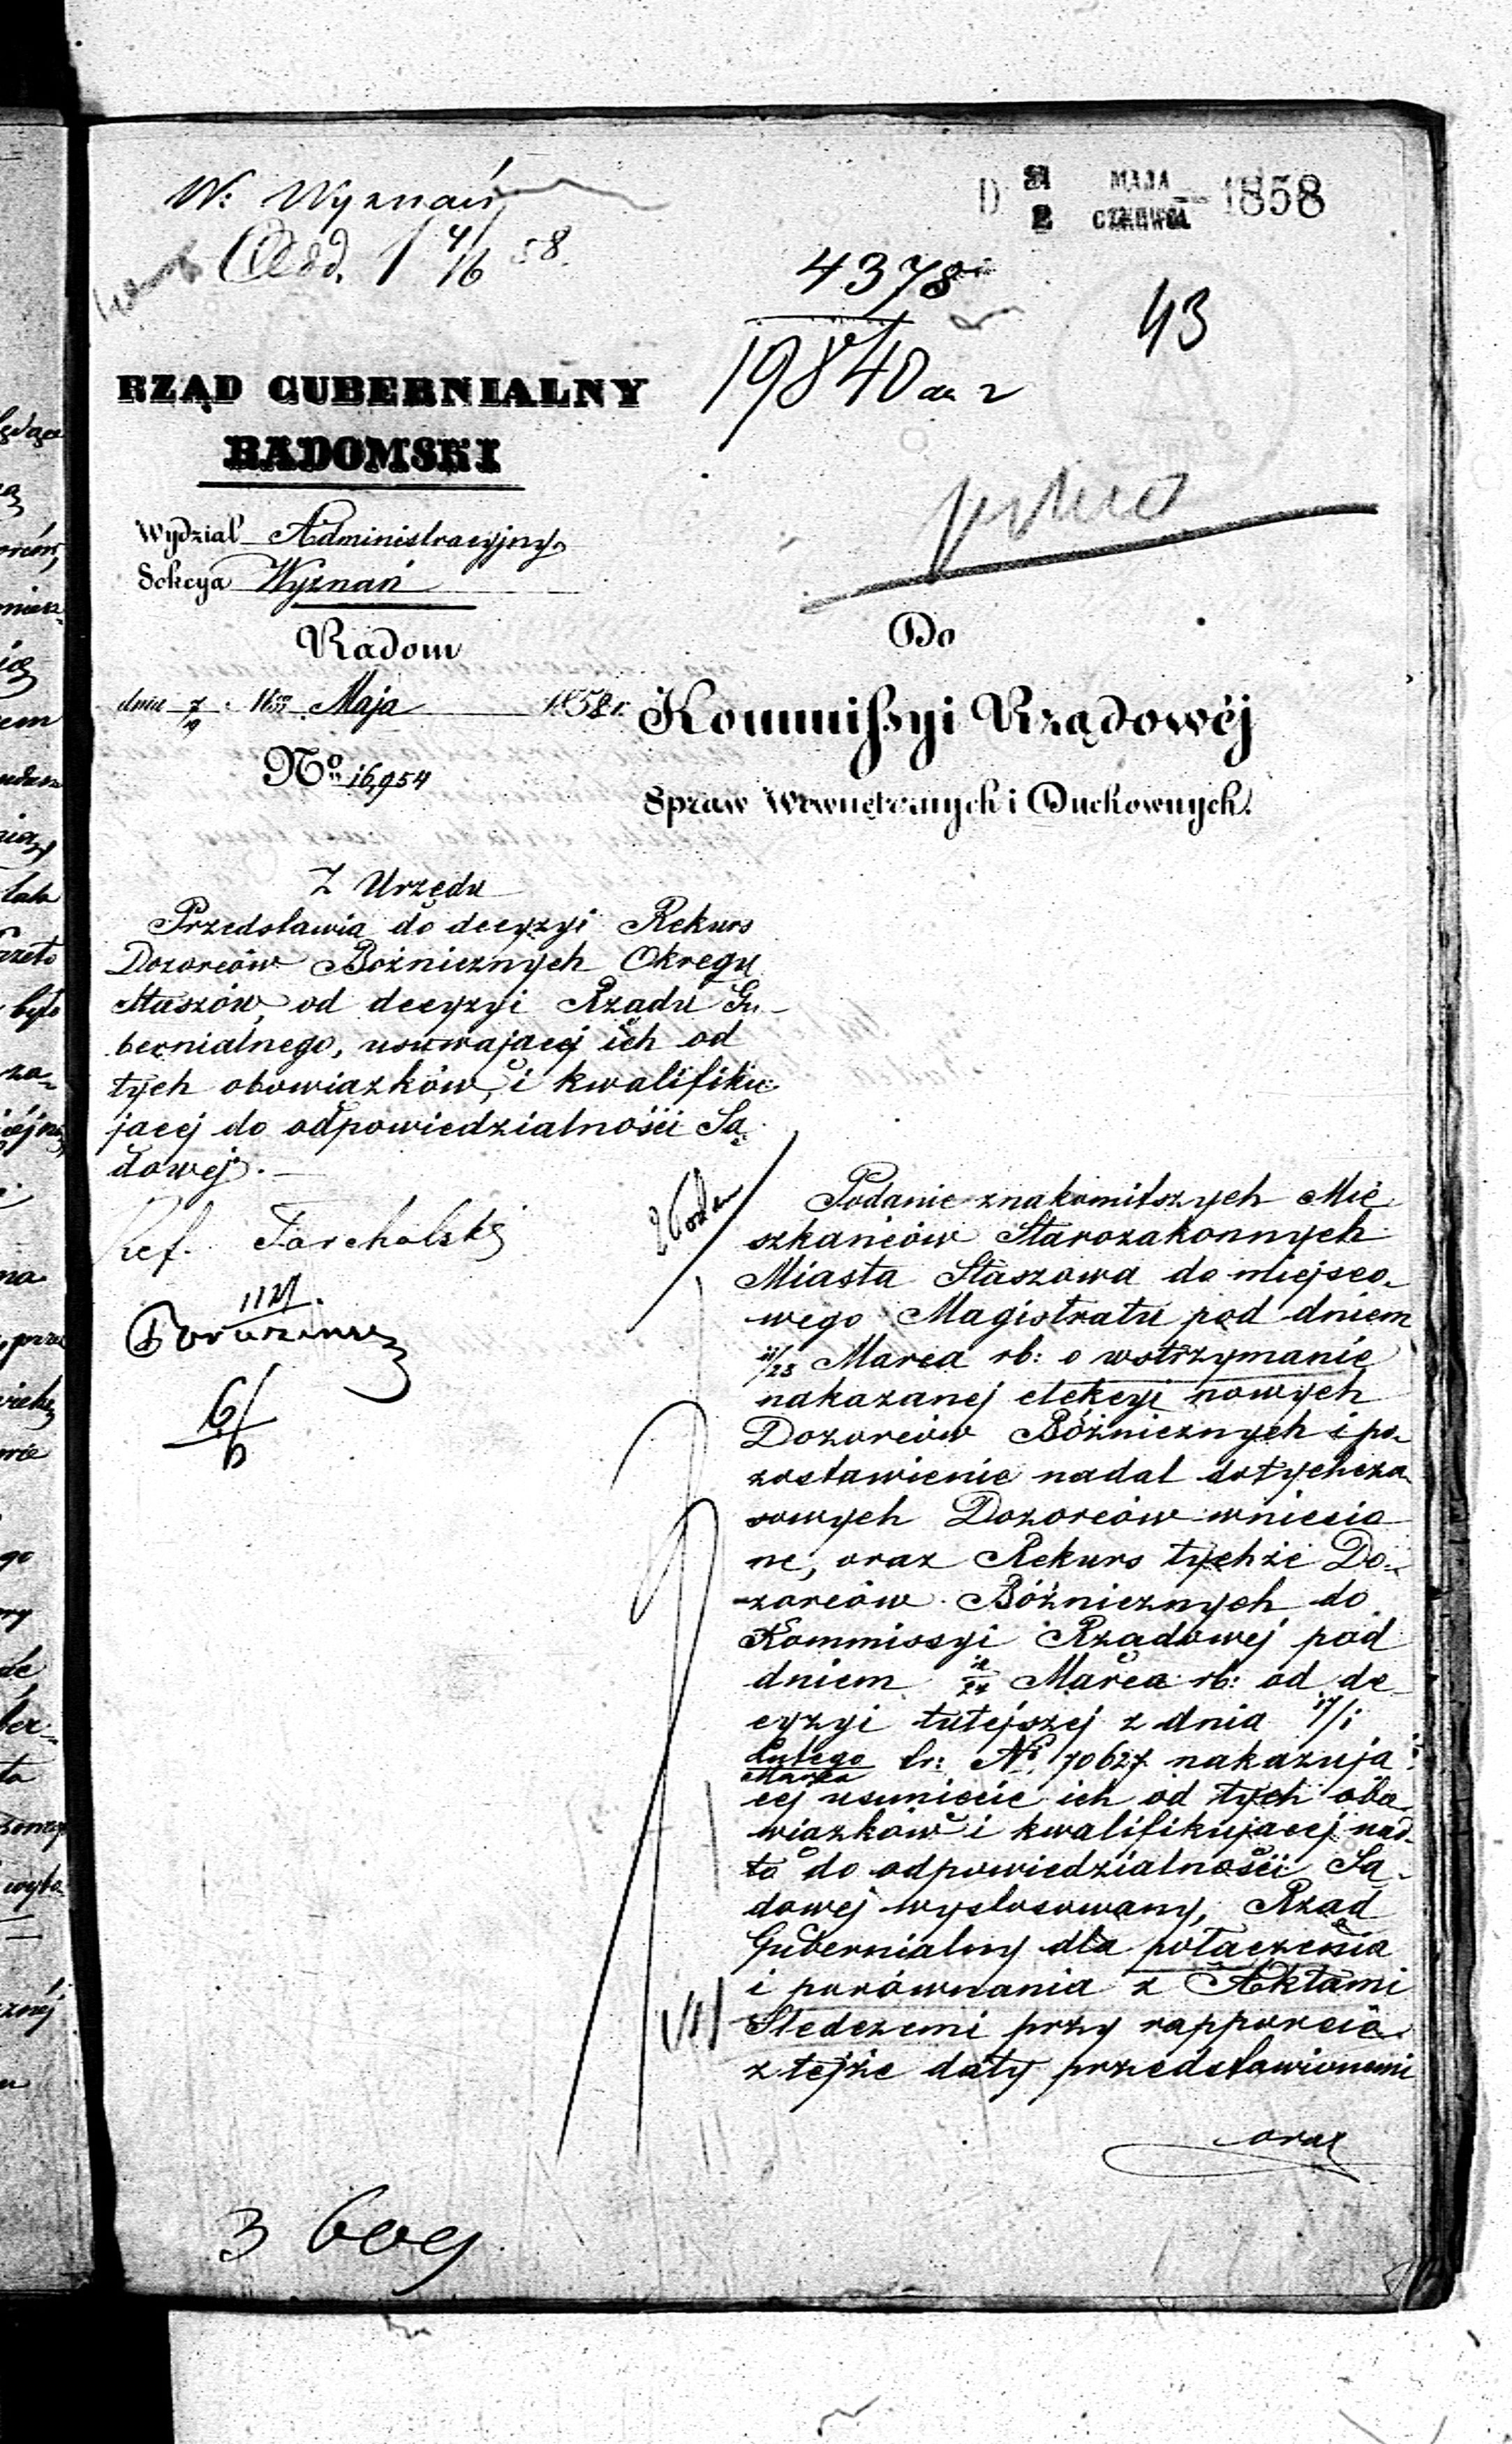 W: Wyznań
Odd. 1 4/6 58.
D 21 MAJA 1858
2 CZERWCA
4378
19840
43
RZĄD GUBERNIALNY
RADOMSKI
Wydział Administracyjny
Sekcya Wyznań
Radom
dnia 7/19 Maja 1858 r.
No 16,954
Do
Kommissyi Rządowéj
Spraw Wewnętrznych i Duchownych.
Z Urzędu
Przedstawia do decyzyi Rekurs
Dozorców Bożnicznych Okręgu
Staszów, od decyzyi Rządu Gu-
bernialnego, usuwającej ich od
tych obowiązków, i kwalifiku-
jącej do odpowiedzialności Są-
dowej.
Ref.
6/6
Podanie znakomitszych Mie
szkańców Starozakonnych
Miasta Staszowa do miejsco-
wego Magistratu pod dniem
11/23 Marca rb: o wstrzymanie
nakazanej elekcyi nowych
Dozorców Bóżnicznych i po-
zostawienie nadal dotychcza
sowych Dozorców wniesio
ne, oraz Rekurs tychże Do-
zorców Bóżnicznych do
Kommissyi Rządowej pod
dniem Marca rb: od de
cyzyi tutejszej z dnia 17/1
Lutego
Marca br: No 70627 nakazują
cej usunięcie ich od tych obo
wiązków i kwalifikującej nad-
to do odpowiedzialności Są-
dowej wystosowany, Rząd
Gubernialny dla połączenia
i porównania z Aktami
Śledczemi przy rapporcie
z tejże daty przedstawionemi
oraz
3 bog